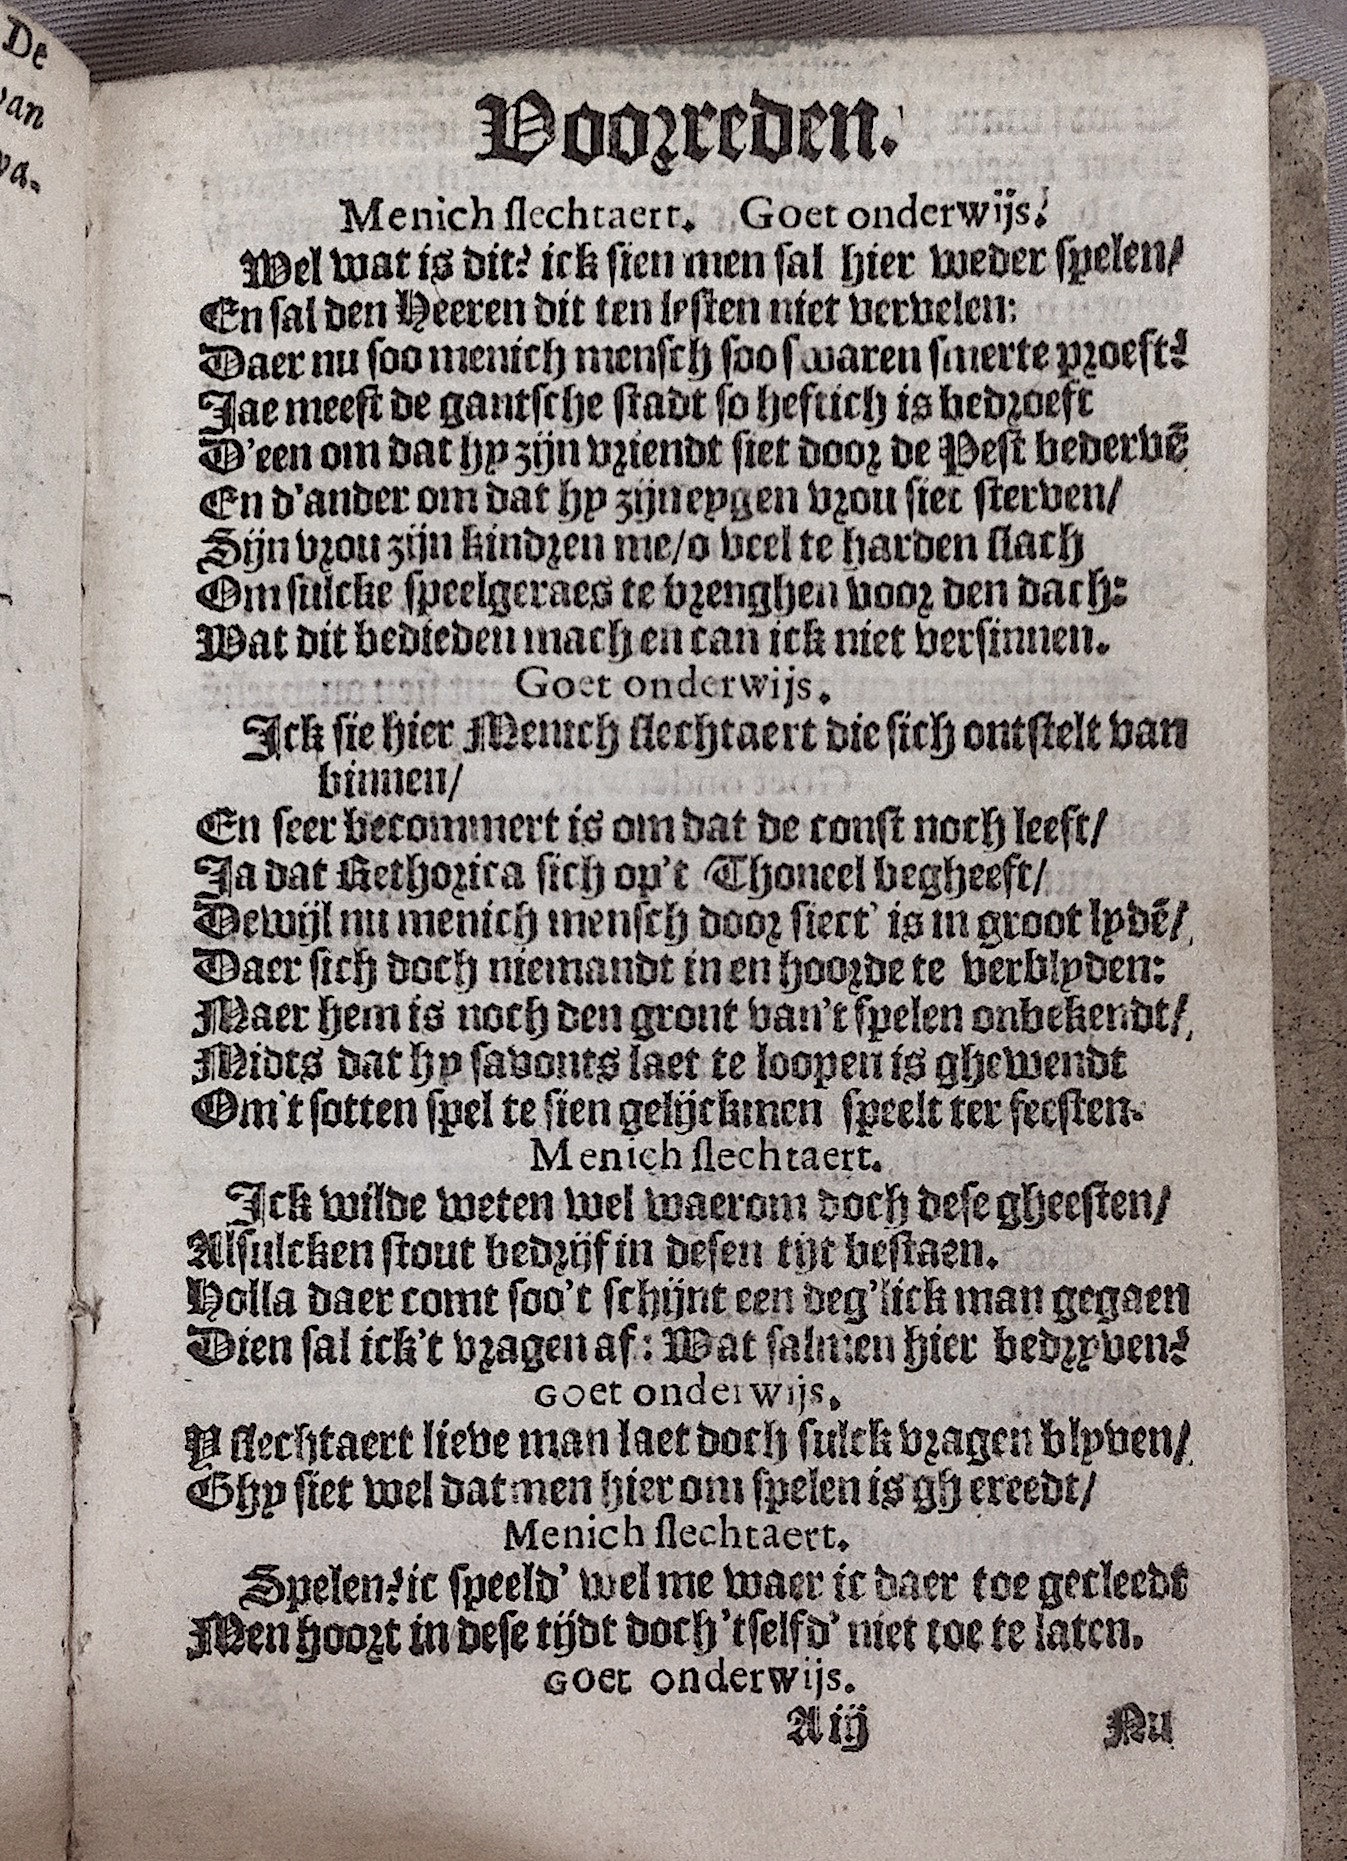 De
van
wa-
Voorreden.
Menich slechtaert. Goet onderwijs.
Wel wat is dit? ick sien men sal hier weder spelen/
En sal den Heeren dit ten lesten niet vervelen:
Daer nu soo menich mensch soo swaren smerte proeft?
Jae meest de gantsche stadt so heftich is bedroeft
D'een om dat hy zijn vriendt siet door de Pest bedervē
En d'ander om dat hy zijn eygen vrou siet sterven/
Sijn vrou zijn kindren me/o veel te harden slach
Om sulcke speelgeraes te brenghen voor den dach:
Wat dit bedieden mach en can ick niet versinnen.
Goet onderwijs.
Ick sie hier Menich slechtaert die sich ontstelt van
binnen/
En seer becommert is om dat de const noch leeft/
Ja dat Rethorica sich op't Thoneel begheeft/
Dewijl nu menich mensch door siect' is in groot lydē/
Daer sich doch niemandt in en hoorde te verblyden:
Maer hem is noch den gront van't spelen onbekendt/
Midts dat hy savonts laet te loopen is ghewendt
Om't sotten spel te sien gelijckmen speelt ter feesten.
Menich slechtaert.
Ick wilde weten wel waerom doch dese gheesten/
Alsulcken stout bedrijf in desen tijt bestaen.
Holla daer comt soo't schijnt een deg'lick man gegaen
Dien sal ick't vragen af: Wat salmen hier bedryven?
Goet onderwijs.
Y slechtaert lieve man laet doch sulck vragen blyven/
Ghy siet wel datmen hier om spelen is gh ereedt/
Menich slechtaert.
Spelen? ic speeld' wel me waer ic daer toe gecleedt
Men hoort in dese tijdt doch 'tselfd' niet toe te laten.
Goet onderwijs.
A ij Nu